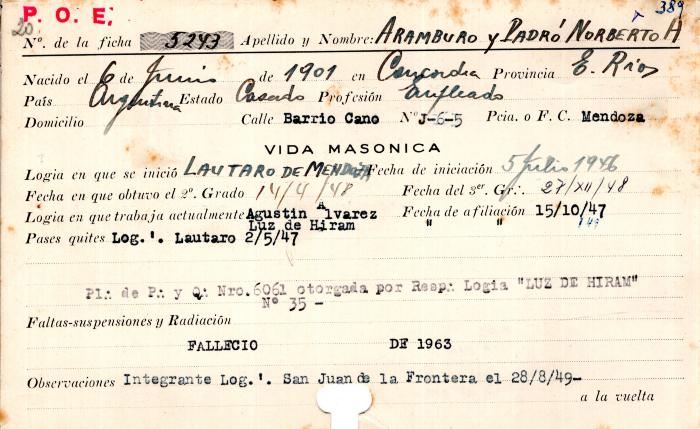 P. O. E. 389
20
Nº. de la ficha 5243 Apellido y Nombre: ARAMBURO y PADRÓ NORBERTO H
Nacido el 6 de Junio de 1901 en Concordia Provincia E. Ríos
País Argentina Estado Casado Profesión Empleado
Domicilio Calle Barrio Cano Nº J-6-5 Pcia. o F. C. Mendoza
VIDA MASONICA
Logia en que se inició LAUTARO DE MENDOZA Fecha de iniciación 5 Julio 1946
Fecha en que obtuvo el 2º. Grado 14/4/48 Fecha del 3er. Gr∴. 27/XII/48
Logia en que trabaja actualmente Agustin Alvarez Fecha de afiliación 15/10/47
Luz de Hiram " " 
Pases quites Log.'. Lautaro 2/5/47
Pl∴ de P∴ y Q∴ Nro. 6061 otorgada por Resp∴ Logia "LUZ DE HIRAM"
Nº 35 -
Faltas-suspensiones y Radiación
FALLECIO DE 1963
Observaciones Integrante Log.'. San Juan de la Frontera el 28/8/49-
a la vuelta